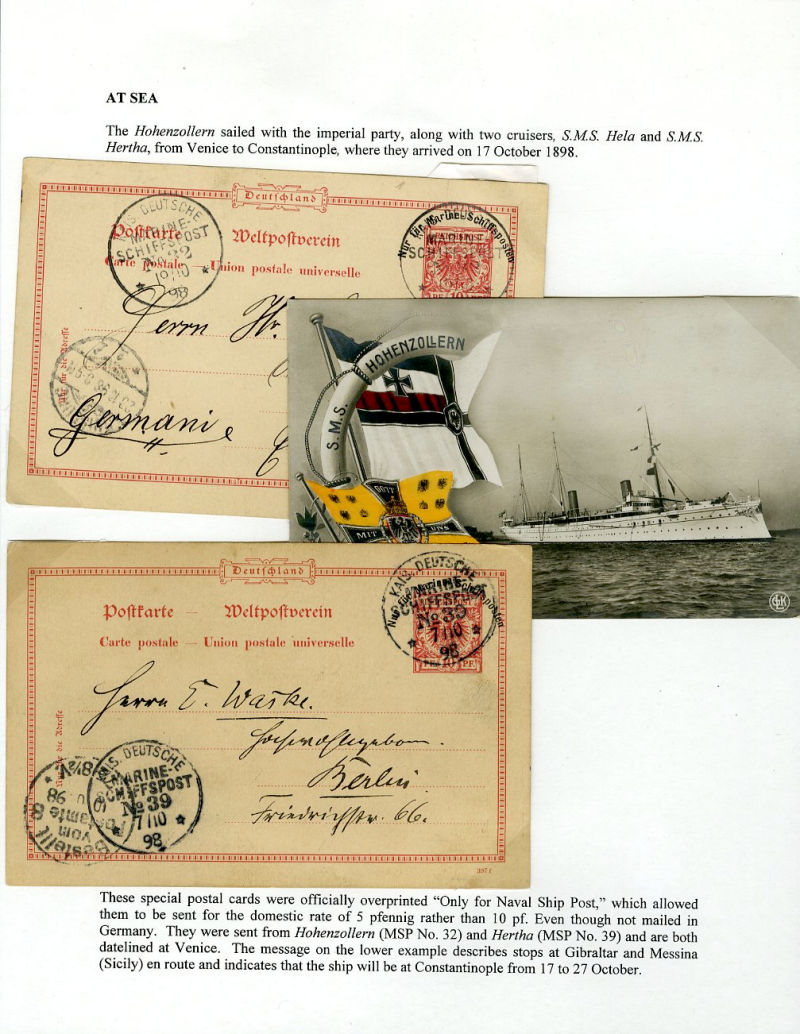 AT SEA
The Hohenzollern sailed with the imperial party, along with two cruisers, S.M.S. Hela and S.M.S.
Hertha, from Venice to Constantinople, where they arrived on 17 October 1898.
Deutschland
Postkarte Weltpostverein
Carte postale — Union postale universelle
KAIS. DEUTSCHE
MARINE-
SCHIFFSPOST
No 32
10
98
Nur für Marine-Schiffsposten
MARINE
SCHIFFSPOST
Nur für die Adresse
Herrn
Germanie
S.M.S. HOHENZOLLERN
GOTT
MIT UNS
Deutschland
Postkarte — Weltpostverein
Carte postale — Union postale universelle
KAIS. DEUTSCHE
MARINE-
SCHIFFSPOST
No 39
7/10
98
Nur für die Adresse
Herrn E. Waske.
Hochwohlgeboren.
Berlin
Friedrichstr. 66.
Bestellt
vom
Postamte 8
98
8¼V.
KAIS. DEUTSCHE
MARINE-
SCHIFFSPOST
No 39
7/10
98
These special postal cards were officially overprinted “Only for Naval Ship Post,” which allowed
them to be sent for the domestic rate of 5 pfennig rather than 10 pf. Even though not mailed in
Germany. They were sent from Hohenzollern (MSP No. 32) and Hertha (MSP No. 39) and are both
datelined at Venice. The message on the lower example describes stops at Gibraltar and Messina
(Sicily) en route and indicates that the ship will be at Constantinople from 17 to 27 October.